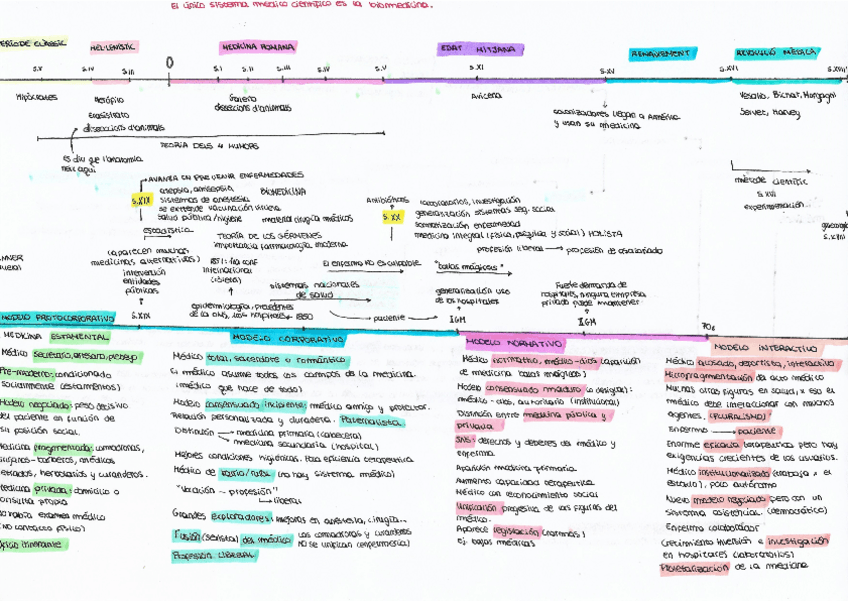 El único sistema médico científico es la biomedicina.
PERÍODE CLÀSSIC
HEL·LENÍSTIC
MEDICINA ROMANA
EDAT MITJANA
RENAIXEMENT
REVOLUCIÓ MÈDICA
S.V
S.IV
S.III
0
S.I
S.II
S.III
S.IV
S.V
S.XI
S.XV
S.XVI
S.XVII
Hipócrates
Herófilo
Erasístrato
diseccions d'animals
Galeno
diseccions d'animals
Avicena
colonizadores llegan a América
y usan su medicina
Vesalio, Bichat, Morgagni
Servet, Harvey
TEORÍA DELS 4 HUMORS
es diu que l'anatomia
neix aquí
mètode científic
S.XVII
experimentación
S.XVIII
S.XIX
AVANZA EN PREVENIR ENFERMEDADES
asepsia, antisepsia
BIOMEDICINA
sistemas de anestesia
se extiende vacunación viruela
salud pública/higiene
material cirugía médicos
estadística
TEORÍA DE LOS GÉRMENES
importancia farmacología moderna
Antibióticos
S.XX
laboratorios, investigación
generalización sistemas seg. social
somatización enfermedad
medicina integral (física, psíquica y social) HOLISTA
profesión liberal → profesión de asalariado
(aparecen muchas
medicinas alternativas)
intervención
entidades
públicas
S.XIX
1851: 1ª conf
internacional
epidemiología, precedentes
de la OMS,
1850
El enfermo NO es culpable
sistemas nacionales
de salud
paciente
"balas mágicas"
generalización uso
de los hospitales
I GM
Fuerte demanda de
hospitales, ninguna empresa
privada puede mantener
II GM
70s
MODELO PROTOCORPORATIVO
MEDICINA ESTAMENTAL
Médico sacerdote, artesano, patbejo
Pre-moderno: condicionado
socialmente (estamentos)
Modelo negociado: peso decisivo
del paciente en función de
su posición social.
Medicina fragmentada: comadronas,
cirujanos-barberos, médicos
letrados, herbolarios y curanderos.
Medicina privada: domicilio o
consulta propia
No había examen médico
(NO contacto físico)
Médico itinerante
MODELO CORPORATIVO
Médico total, sacerdote o romántico
El médico asume todos los campos de la medicina.
(médico que hace de todo)
Modelo consensuado incipiente: médico amigo y protector.
Relación personalizada y duradera. Paternalista.
Distinción → medicina primaria (cabecera)
→ medicina secundaria (hospital)
Mejores condiciones higiénicas. Poca eficiencia terapéutica
Médico de barrio/rural (no hay sistema médico)
"Vocación - profesión"
→ liberal
Grandes exploradores: mejoras en anestesia, cirugía...
Fusión (señorista) del médico
Las comadronas y curanderos
NO se unifican (enfermería)
Profesión LIBERAL
MODELO NORMATIVO
Médico normativo, médico-dios (aparición
de medicina balas mágicas)
Modelo consensuado maduro (o desigual):
médico-dios, autoritario (institucional)
Distinción entre medicina pública y
privada
SNS: derechos y deberes de médico y
enfermo
Aparición medicina primaria.
Aumento capacidad terapéutica
Médico con reconocimiento social
Unificación progresiva de las figuras del
médico.
Aparece legislación (normas)
ej. bajas médicas
MODELO INTERACTIVO
Médico acusado, deportista, interactivo
Hiperfragmentación del acto médico
Muchas otras figuras en salud, x eso el
médico debe interaccionar con muchos
agentes. (PLURALISMO)
Enfermo → paciente
Enorme eficacia terapéutica pero hay
exigencias crecientes de los usuarios.
Médico institucionalizado (trabaja x el
estado), poco autónomo
Nuevo modelo negociado pero con un
sistema asistencial. (democrático)
Enfermo colaborador
Crecimiento inversión e investigación
en hospitales (laboratorios)
Proletarización de la medicina